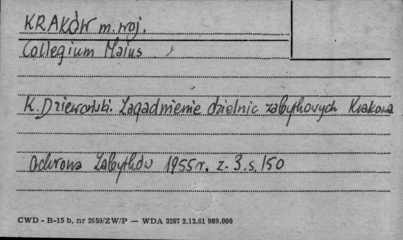 KRAKÓW m. woj.
Collegium Maius
K. Dziewoński. Zagadnienie dzielnic zabytkowych Krakowa
Ochrona Zabytków 1955r. z. 3. s. 150
CWD - B-15 b, nr 2659/ZW/P — WDA 3287 2.12.61 989.000